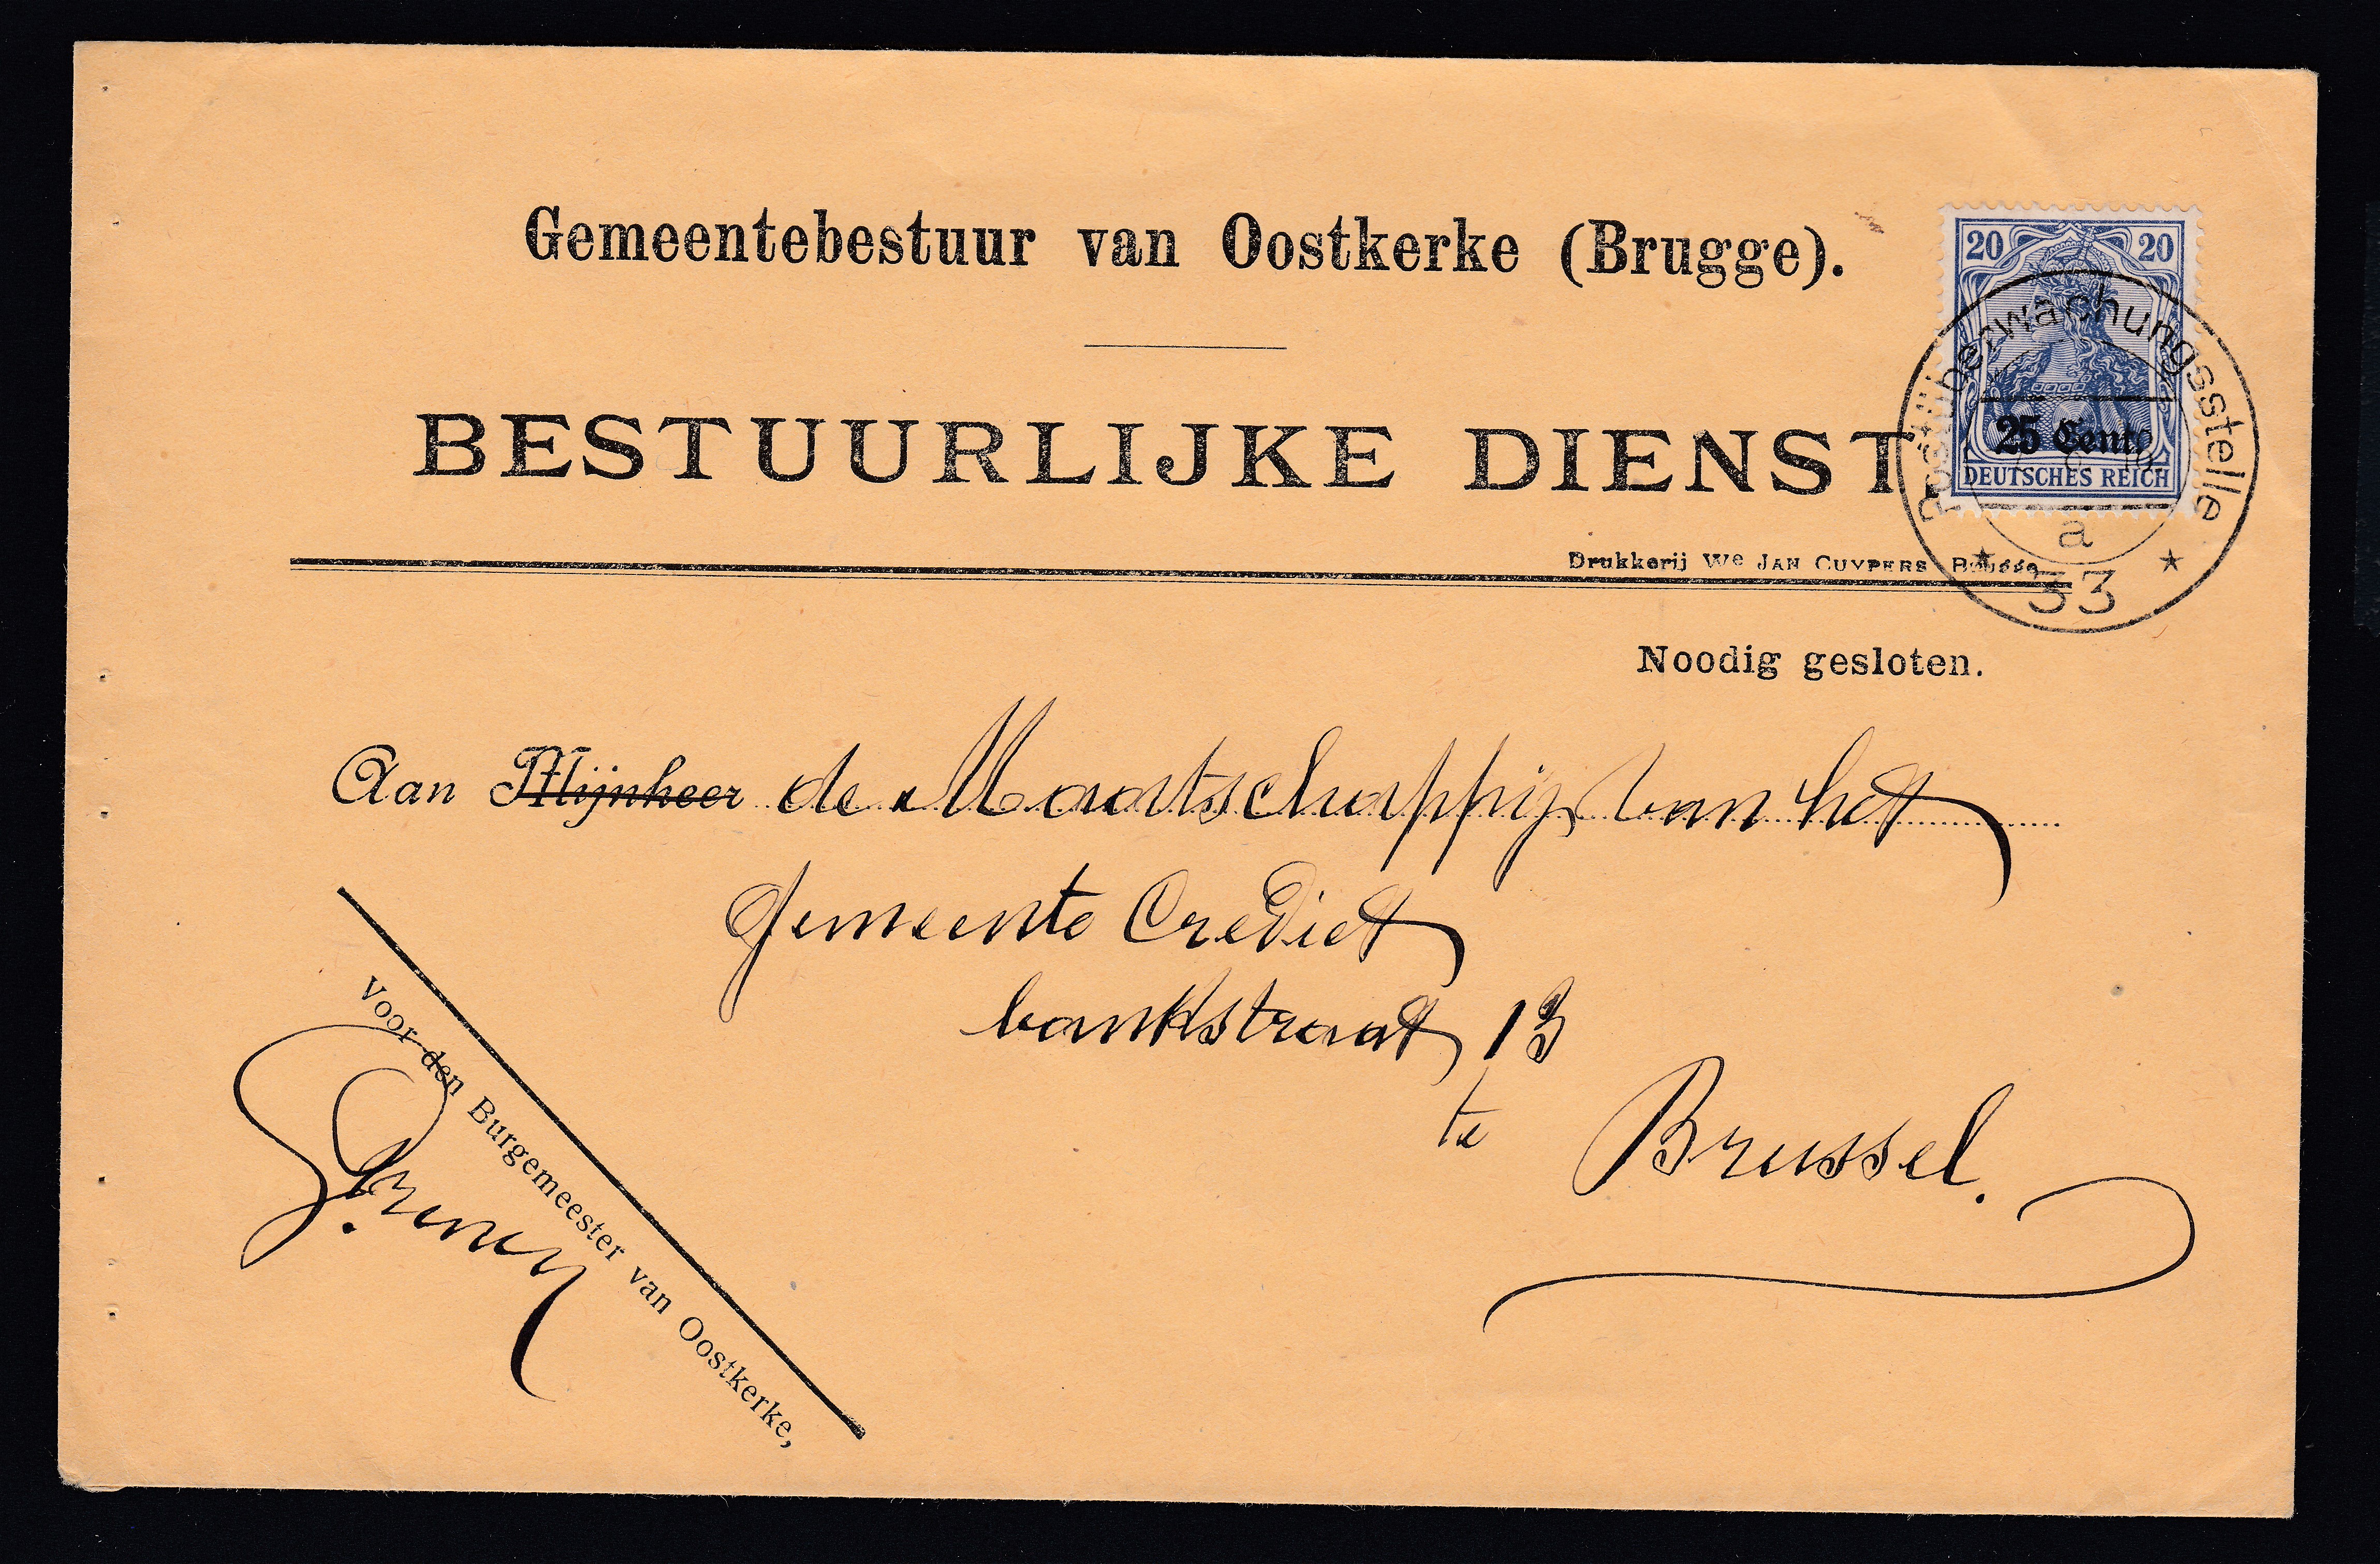 Gemeentebestuur van Oostkerke (Brugge).
20 20
25 Cent
DEUTSCHES REICH
Postüberwachungsstelle
a
33
BESTUURLIJKE DIENST.
Drukkerij We JAN CUYPERS
Noodig gesloten.
Aan Mijnheer de Maatschappij van het
Gemeente Crediet
bankstraat 13
te Brussel.
Voor den Burgemeester van Oostkerke,